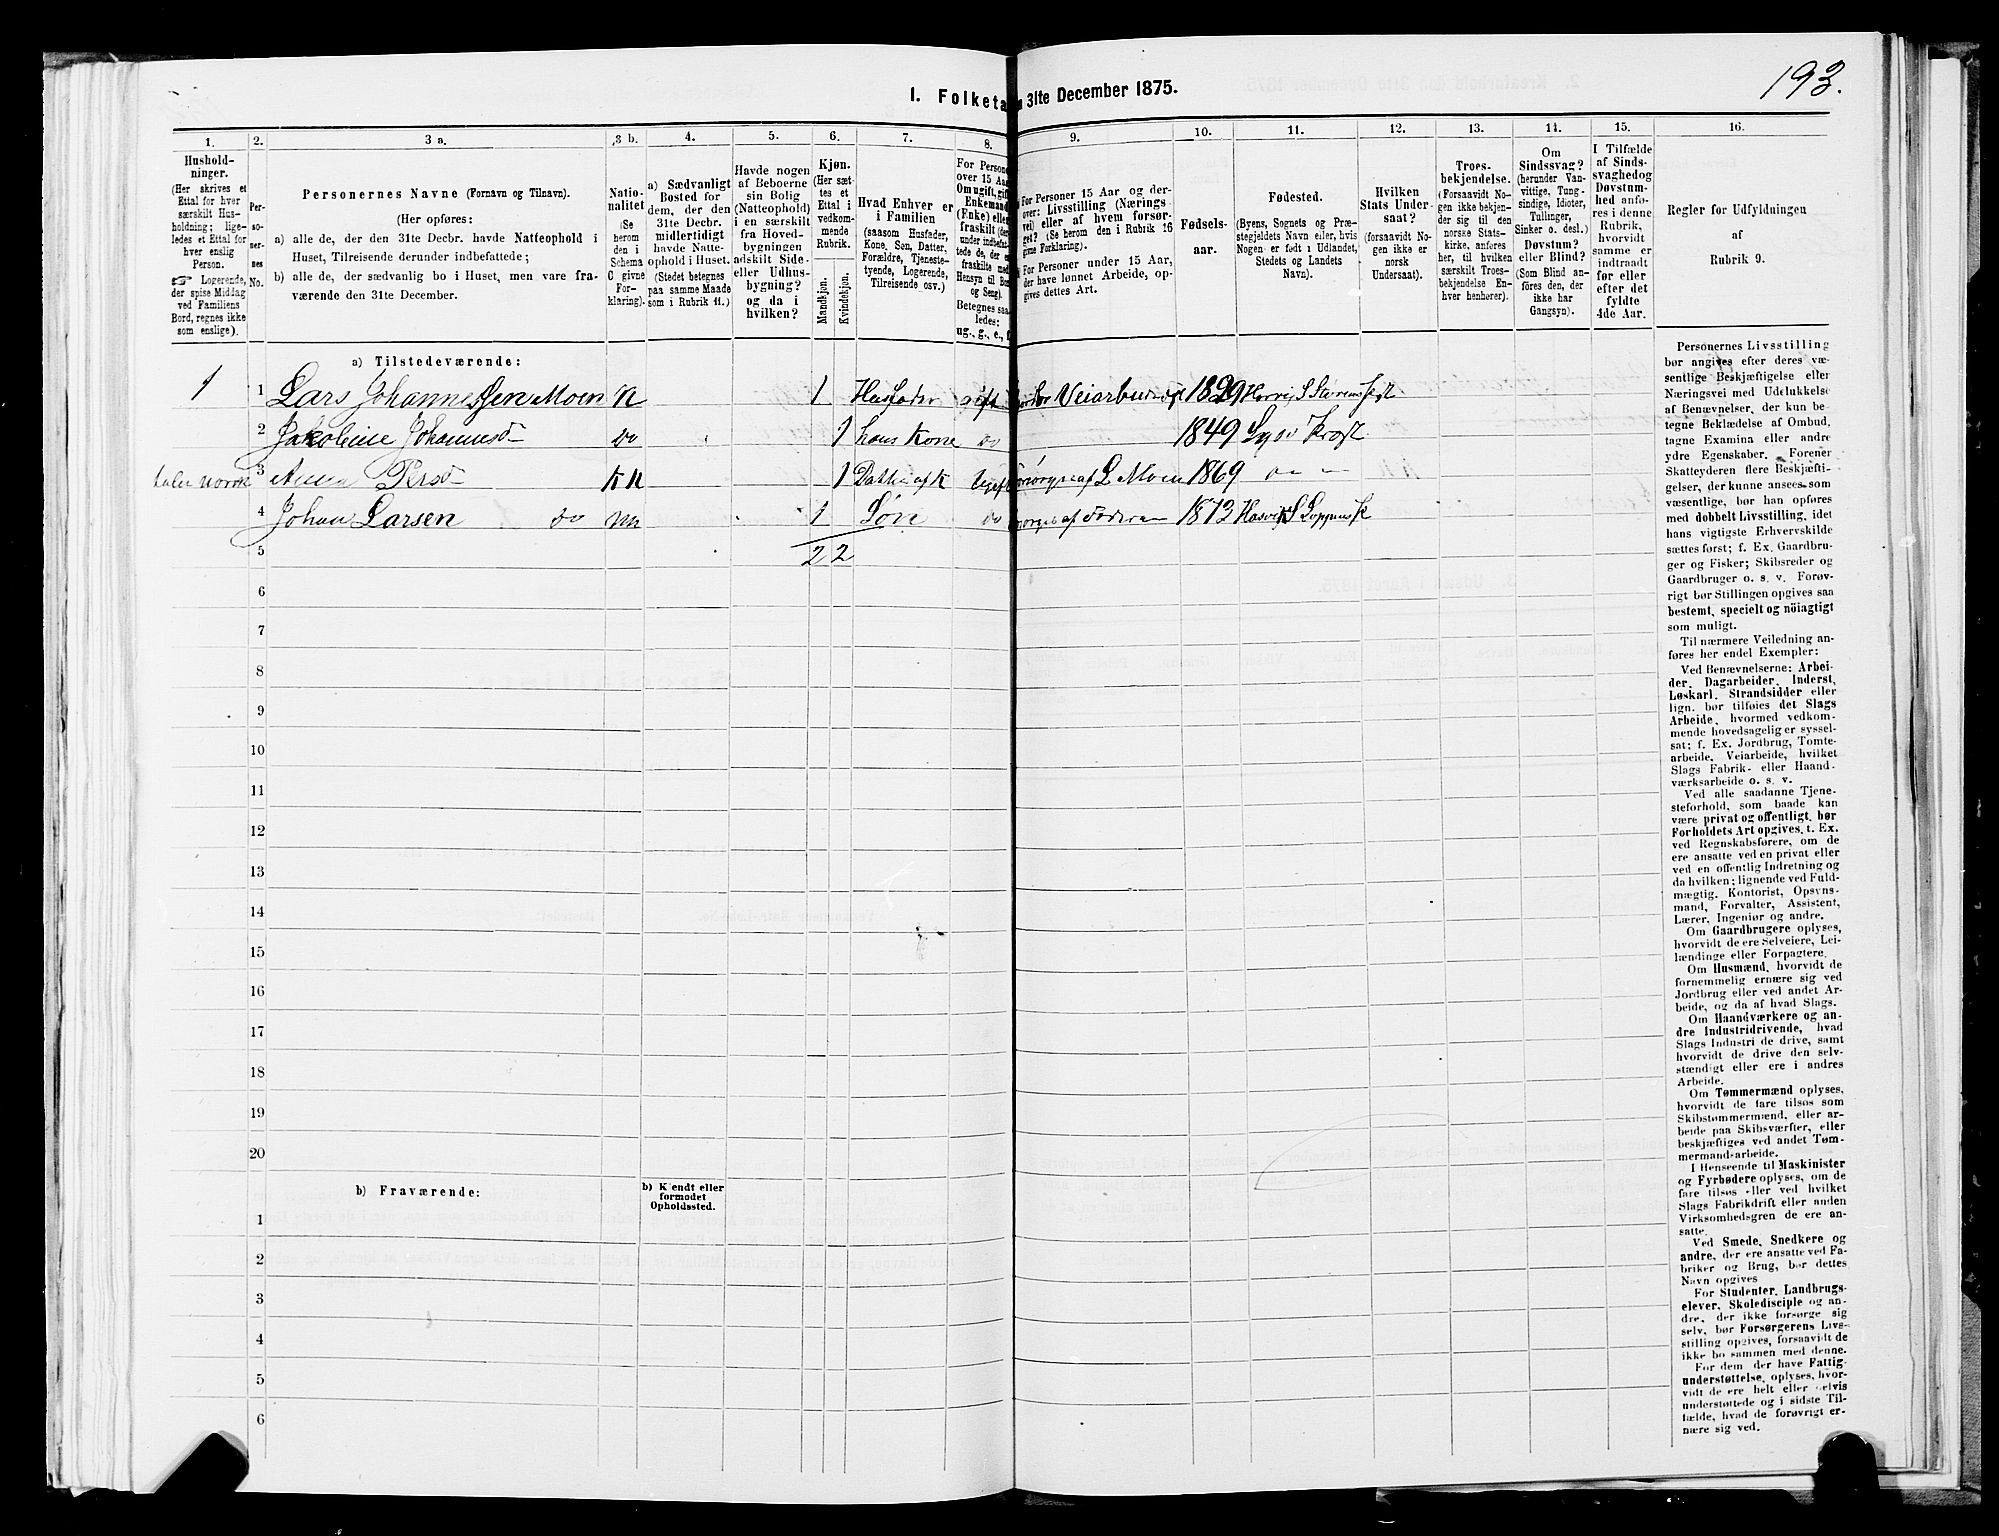 193.
I. Folketa
n 31te December 1875.
1.
2.
3 a.
3 b.
4.
5.
6.
7.
8.
9.
10.
11.
12.
13.
14.
15.
16.
Hushold-
ninger.
(Her skrives et
Ettal for hver
særskilt Hus-
holdning; lige-
ledes et Ettal for
hver enslig
Person.
☞ Logerende,
der spise Middag
ved Familiens
Bord, regnes ikke
som enslige).
Per-
so-
ner-
nes
No.
Personernes Navne (Fornavn og Tilnavn).
(Her opføres:
a) alle de, der den 31te Decbr. havde Natteophold i
Huset, Tilreisende derunder indbefattede;
b) alle de, der sædvanlig bo i Huset, men vare fra-
værende den 31te December.
Natio-
nalitet
(Se
herom
den i
Schema
C givne
For-
klaring).
a) Sædvanligt
Bosted for
dem, der den
31te Decbr.
midlertidigt
havde Natte-
ophold i Huset.
(Stedet betegnes
paa samme Maade
som i Rubrik 11.)
Havde nogen
af Beboerne
sin Bolig
(Natteophold)
i en særskilt
fra Hoved-
bygningen
adskilt Side-
eller Udhus-
bygning?
og da i
hvilken?
Kjøn.
(Her sæt-
tes et
Ettal i
vedkom-
mende
Rubrik.
Mandkjøn.
Kvindekjøn.
Hvad Enhver er
i Familien
(saasom Husfader,
Kone, Søn, Datter,
Forældre, Tjeneste-
tyende, Logerende,
Tilreisende osv.)
For Persone
over 15 Aar
Om ugift, gift
Enkemand
(Enke) eller
fraskilt (der
under indbefat-
tede de, de er
fraskilte med
Hensyn til Bo
og Seng).
Betegnes saa-
ledes:
ug., g., e., f.
For Personer 15 Aar og der-
over: Livsstilling (Nærings
vei) eller af hvem forsør-
get? (Se herom den i Rubrik 16
givne Forklaring).
For Personer under 15 Aar,
der have lønnet Arbeide, op-
gives dettes Art.
Fødsels-
aar.
Fødested.
(Byens, Sognets og Præ-
stegjeldets Navn eller, hvis
Nogen er født i Udlandet,
Stedets og Landets
Navn).
Hvilken
Stats Under-
saat?
(forsaavidt No-
gen ikke er
norsk
Undersaat).
Troes-
bekjendelse.
(Forsaavidt No-
gen ikke bekjen-
der sig til den
norske Stats-
kirke, anføres
her, til hvilken
særskilt Troes-
bekjendelse En-
hver henhører).
Om
Sindssvag?
(herunder Van-
vittige, Tung-
sindige, Idioter,
Tullinger,
Sinker o. desl.)
Døvstum?
eller Blind?
(Som Blind an-
føres den, der
ikke har
Gangsyn).
I Tilfælde
af Sinds-
svaghed og
Døvstum-
hed anfø-
res i denne
Rubrik,
hvorvidt
samme er
indtraadt
før eller
efter det
fyldte
4de Aar.
Regler for Udfyldningen
af
Rubrik 9.
a) Tilstedeværende:
1 1 Lars Johannessen Moen N 1 Husfader gift Veiarbeider 1829
2 Jakobine Johannesd do 1 hans Kone do 1849
taler norsk 3 Anna Persd KK 1 L Moen 1869
4 Johan Larsen do NN 1 Søn do 1873
5 2 2
6
7
8
9
10
11
12
13
14
15
16
17
18
19
20
b) Fraværende:
b) Kjendt eller
formodet
Opholdssted.
1
2
3
4
5
6
Personernes Livsstilling
bør angives efter deres væ-
sentlige Beskjæftigelse eller
Næringsvei med Udelukkelse
af Benævnelser, der kun be-
tegne Beklædelse af Ombud,
tagne Examina eller andre
ydre Egenskaber. Forener
Skatteyderen flere Beskjæfti-
gelser, der kunne ansees som
væsentlige, bør han opføres
med dobbelt Livsstilling, idet
hans vigtigste Erhvervskilde
sættes først; f. Ex. Gaardbru-
ger og Fisker; Skibsreder og
Gaardbruger o. s. v. Forøv-
rigt bør Stillingen opgives saa
bestemt, specielt og nöiagtigt
som muligt.
Til nærmere Veiledning an-
føres her endel Exempler:
Ved Benævnelserne: Arbei-
der, Dagarbeider, Inderst,
Løskarl, Strandsidder eller
lign. bør tilføies det Slags
Arbeide, hvormed vedkom-
mende hovedsagelig er syssel-
sat; f. Ex. Jordbrug, Tomte-
arbeide, Veiarbeide, hvilket
Slags Fabrik- eller Haand-
værksarbeide o. s. v.
Ved alle saadanne Tjene-
steforhold, som baade kan
være privat og offentligt, bør
Forholdets Art opgives, t. Ex.
ved Regnskabsførere, om de
ere ansatte ved en privat eller
ved en offentlig Indretning og
da hvilken; lignende ved Fuld-
mægtig, Kontorist, Opsyns-
mand, Forvalter, Assistent,
Lærer, Ingeniør og andre.
Om Gaardbrugere oplyses,
hvorvidt de ere Selveiere, Lei-
lændinge eller Forpagtere.
Om Husmænd, hvorvidt de
fornemmelig ernære sig ved
Jordbrug eller ved andet Ar-
beide, og da af hvad Slags.
Om Haandværkere og an-
dre Industridrivende, hvad
Slags Industri de drive, samt
hvorvidt de drive den selv-
stændigt eller ere i andres
Arbeide.
Om Tømmermænd oplyses,
hvorvidt de fare tilsøs som
Skibstømmermænd, eller ar-
beide paa Skibsværfter, eller
beskjæftiges ved andet Tøm-
mermandsarbeide.
I Henseende til Maskinister
og Fyrbødere oplyses, om de
fare tilsøs eller ved hvilket
Slags Fabrikdrift eller anden
Virksomhedsgren de ere an-
satte.
Ved Smede, Snedkere og
andre, der ere ansatte ved Fa-
briker og Brug, bør dettes
Navn opgives
For Studenter, Landbrugs-
elever, Skoledisciple og an-
dre, der ikke forsørge sig
selv, bør Forsørgerens Livs-
stilling opgives, forsaavidt de
ikke bo sammen med denne.
For dem der have Fattig-
understøttelse, oplyses, hvor-
vidt de ere helt eller delvis
understøttede og i sidste Til-
fælde, hvad de forøvrigt er-
nære sig ved.